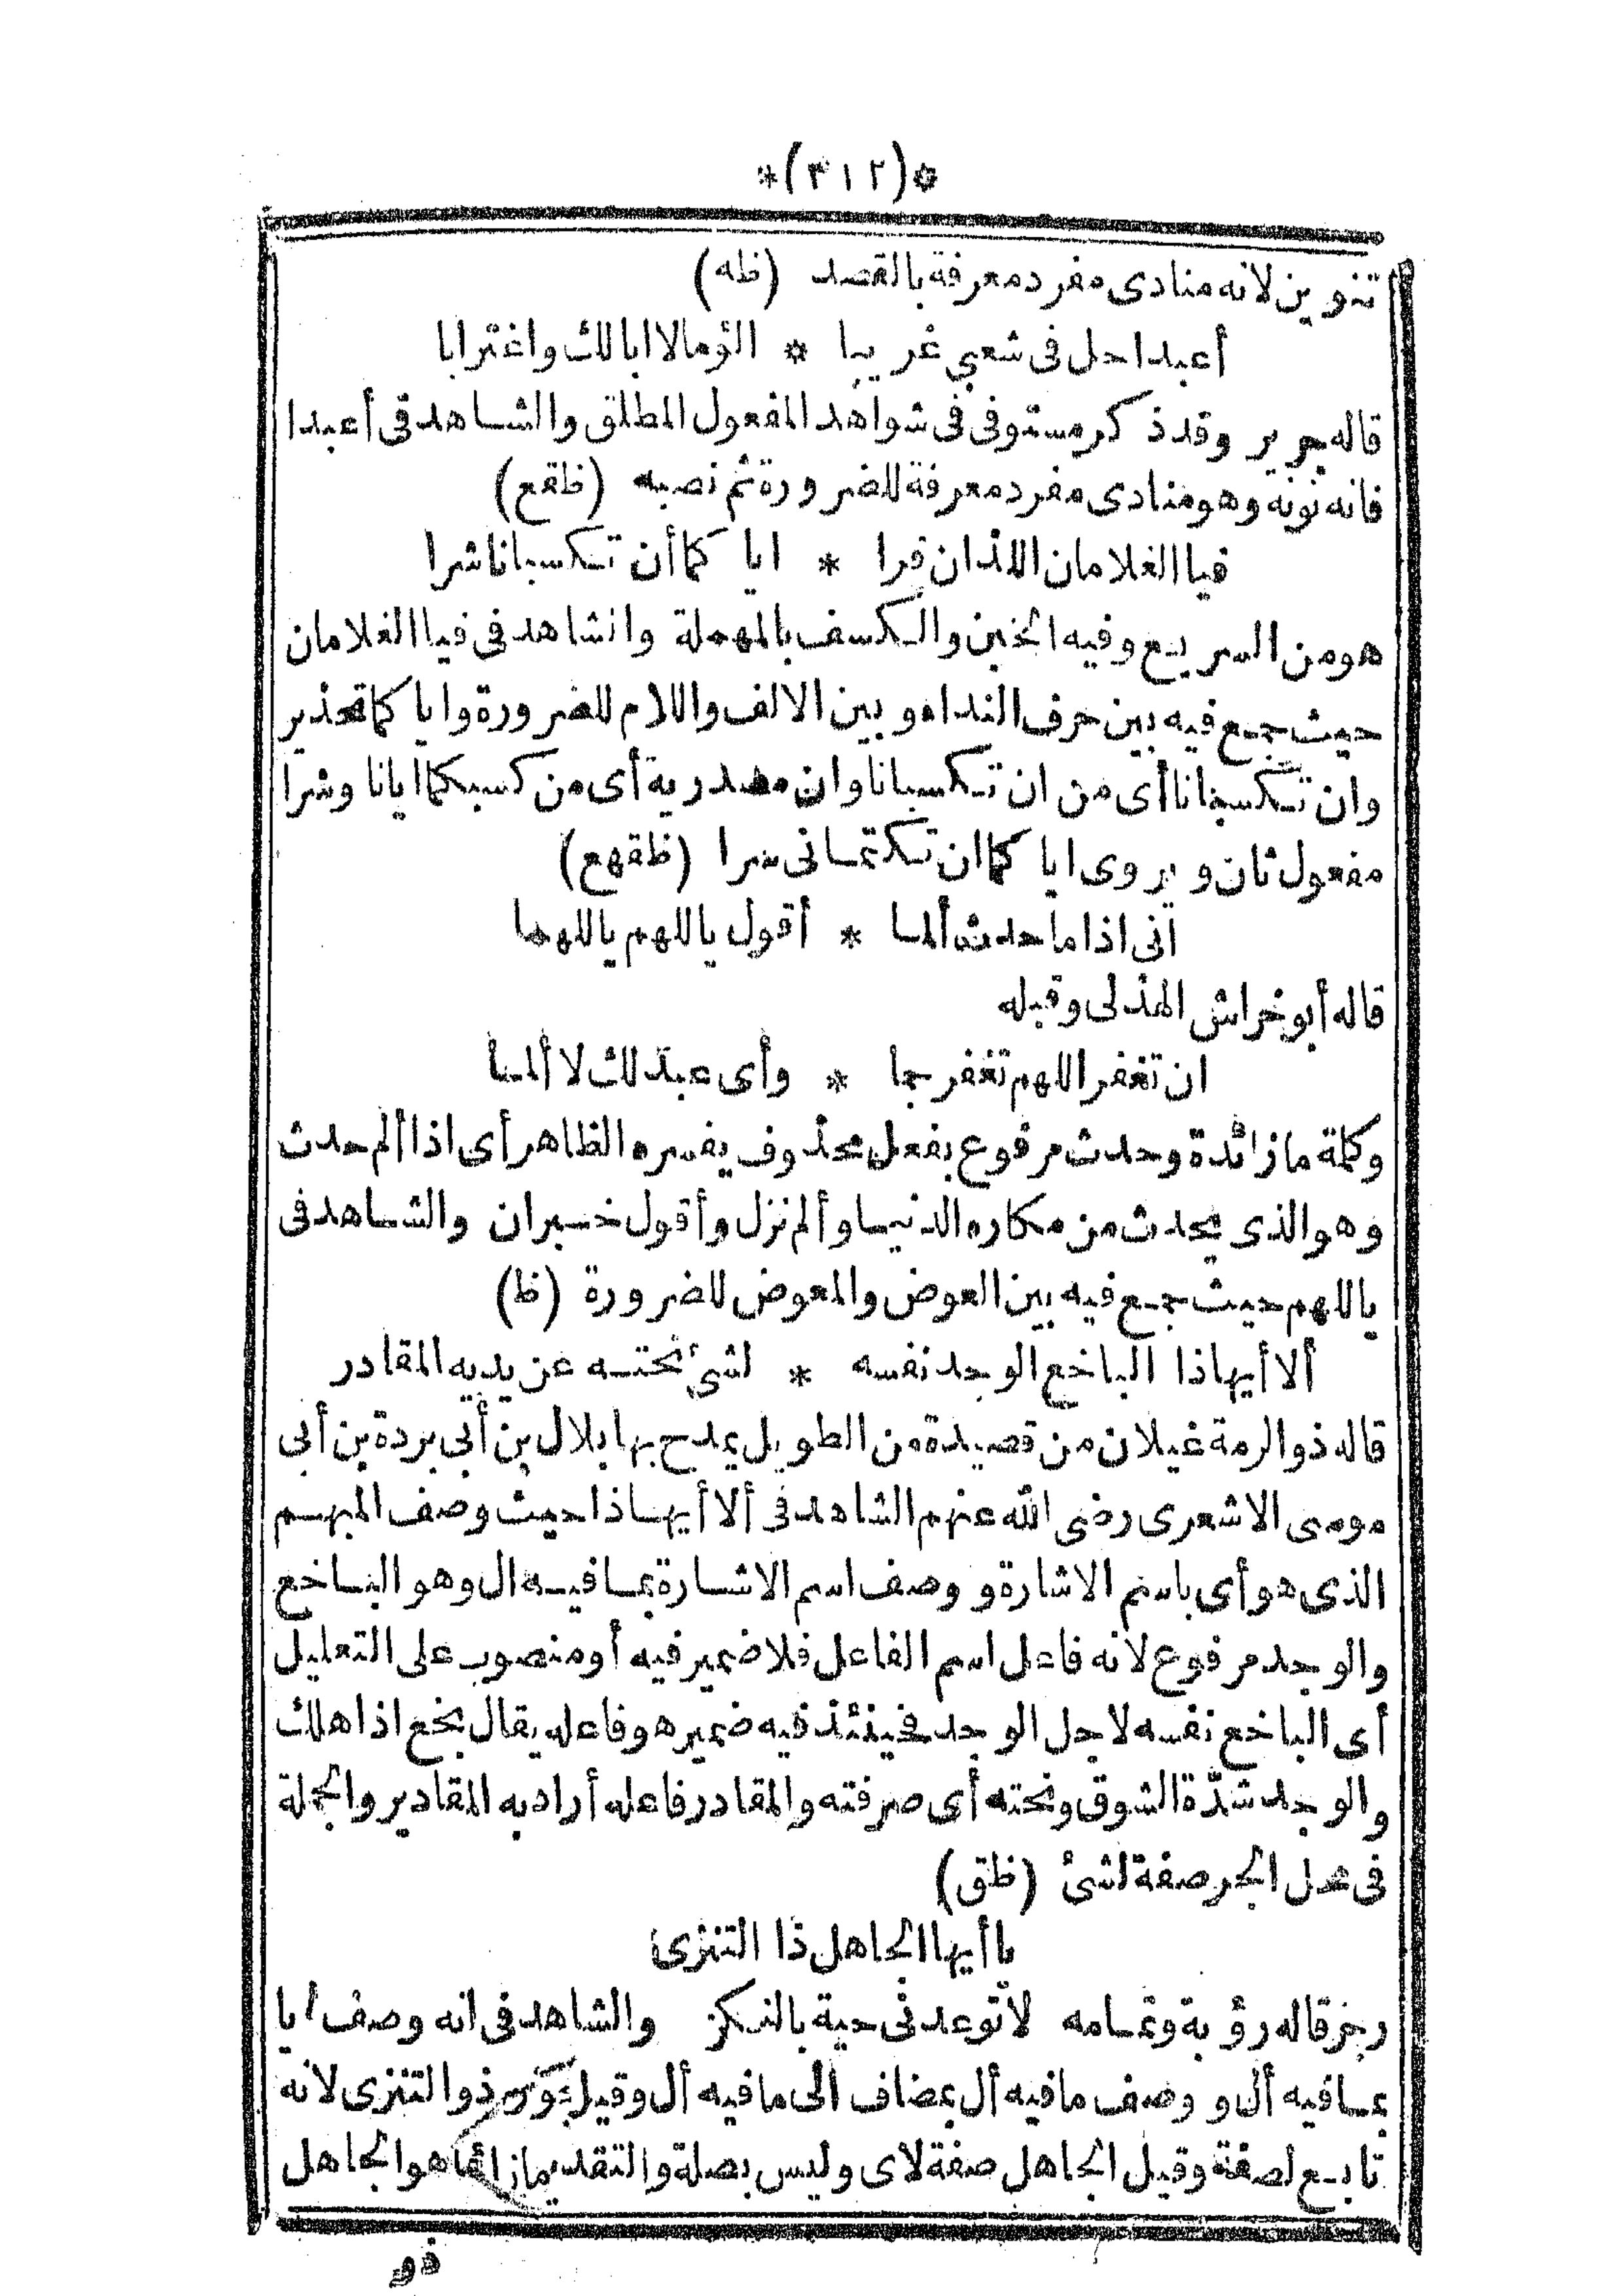 *(٣١٢)*
تنوين لانه منادى مفرد معرفة بالقصد (ظه)
أعبدا حل فى شعبي غريبا * ألؤما لا ابا لك واغترابا
قاله جرير وقد ذكر مستوفى فى شواهد المفعول المطلق والشاهد فى أعبدا
فانه نونه وهو منادى مفرد معرفة للضرورة ثم نصبه (ظقع)
فيا الغلامان اللذان فرا * ايا كما أن تكسبانا شرا
هو من السريع وفيه الخبن والكسف بالمهملة والشاهد فى فيا الغلامان
حيث جمع فيه بين حرف النداء وبين الالف واللام للضرورة وايا كما تحذير
وان تكسبانا أى من ان تكسبانا وان مصدرية أى من كسبكما ايانا وشرا
مفعول ثان ويروى ايا كما ان تكتمانى سرا (ظقهع)
انى اذا ما حدث ألما * أقول ياللهم ياللهما
قاله أبو خراش الهذلى وقبله
ان تغفر اللهم تغفر جما * وأى عبد لك لا ألما
وكلمة ما زائدة وحدث مرفوع بفعل محذوف يفسره الظاهر أى اذا ألم حدث
وهو الذى يحدث من مكاره الدنيا وألم نزل وأقول خبران والشاهد فى
ياللهم حيث جمع فيه بين العوض والمعوض للضرورة (ظ)
ألا أيهاذا الباخع الوجد نفسه * لشئ نحته عن يديه المقادر
قاله ذو الرمة غيلان من قصيدة من الطويل يمدح بها بلال بن أبى بردة بن أبى
موسى الاشعرى رضى الله عنهم الشاهد فى ألا أيهاذا حيث وصف المبهم
الذى هو أى باسم الاشارة و وصف اسم الاشارة بما فيه ال وهو الباخع
والوجد مرفوع لانه فاعل اسم الفاعل فلا ضمير فيه أو منصوب على التعليل
أى الباخع نفسه لاجل الوجد فحينئذ فيه ضمير هو فاعله يقال بخع اذا هلك
والوجد شدّة الشوق ونحته أى صرفته والمقادر فاعله أراد به المقادير والجملة
فى محل الجر صفة لشئ (ظق)
يا أيها الجاهل ذا التنزى
رجز قاله رؤبة وتمامه لا توعدنى حية بالنكز والشاهد فى انه وصف ايا
بما فيه أل و وصف ما فيه أل بمضاف الى ما فيه أل وقيل يجوز ذو التنزى لانه
تابع لصفة وقيل الجاهل صفة لاى وليس بصلة والتقدير ما زائما هو الجاهل
ذو